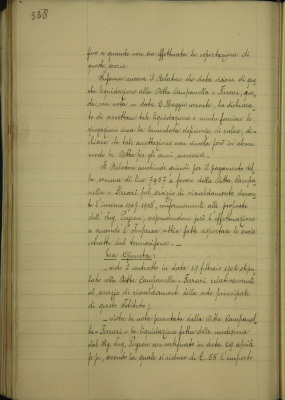 338
fino a quando non sia effettuata la esportazione di
queste scorie.
Informa ancora il Relatore che data visione di que
sta liquidazione alla Ditta Campanella e Ferrari, que
sta, con nota in data 2 Maggio corrente, ha dichiara
to di accettare tale liquidazione e mentre fornisce le
spiegazioni circa la lamentata deficienza di calore, di
chiara che tale accettazione non vincola però in alcun
modo la Ditta per gli anni successivi.
Il Relatore conchiude quindi per il pagamento del
la somma di Lire 7457 a favore della Ditta Campa
nella e Ferrari pel servizio di riscaldamento duran
te l'inverno 1907-908, conformemente alle proposte
dell'Ing. Peyron, sospendendone però l'effettuazione
a quando l'Impresa abbia fatto asportare le scorie
estratte dal termosifone. —
La Giunta;
— visto il contratto in data 19 febbraio 1906 stipu
lato colla Ditta Campanella-Ferrari relativamente
al servizio di riscaldamento della sede principale
di questo Istituto;
— vista la nota presentata dalla Ditta Campanel
la-Ferrari e la liquidazione fatta della medesima
dal Sig. Ing. Peyron con rapporto in data 29 aprile
p.p., secondo la quale si riduce di L. 55 l'importo